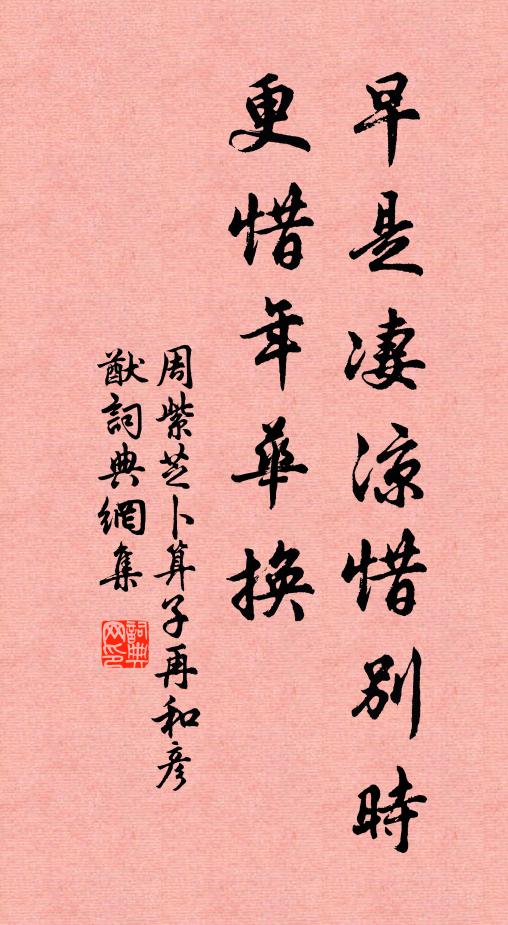 早是凄涼惜別時
更惜年華換
周紫芝卜算子再和彦
猷詞典網集
詞典
网印